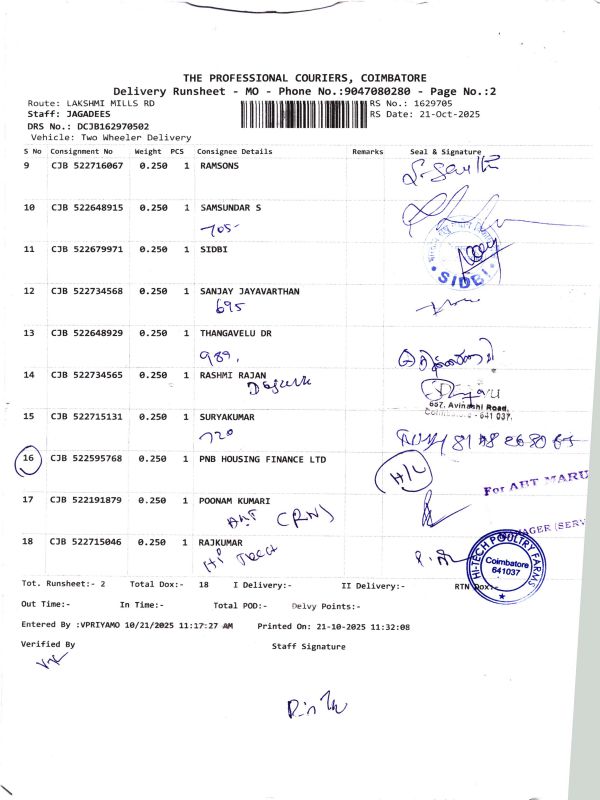 THE PROFESSIONAL COURIERS, COIMBATORE
Delivery Runsheet - MO - Phone No.:9047080280 - Page No.:2
Route: LAKSHMI MILLS RD RS No.: 1629705
Staff: JAGADEES RS Date: 21-Oct-2025
DRS No.: DCJB162970502
Vehicle: Two Wheeler Delivery
S No Consignment No Weight PCS Consignee Details Remarks Seal & Signature
9 CJB 522716067 0.250 1 RAMSONS
10 CJB 522648915 0.250 1 SAMSUNDAR S
705
11 CJB 522679971 0.250 1 SIDBI
SIDBI
12 CJB 522734568 0.250 1 SANJAY JAYAVARTHAN
695
13 CJB 522648929 0.250 1 THANGAVELU DR
989,
14 CJB 522734565 0.250 1 RASHMI RAJAN
657, Avinashi Road,
Coimbatore - 641 037.
15 CJB 522715131 0.250 1 SURYAKUMAR
720
16 CJB 522595768 0.250 1 PNB HOUSING FINANCE LTD
H/L
For ABT MARU
17 CJB 522191879 0.250 1 POONAM KUMARI
ABT (RN)
AGER (SERV
18 CJB 522715046 0.250 1 RAJKUMAR
Hi Tech
HI-TECH POULTRY FARMS
Coimbatore
641037
Tot. Runsheet:- 2 Total Dox:- 18 I Delivery:- II Delivery:- RTN Dox:-
Out Time:- In Time:- Total POD:- Delvy Points:-
Entered By :VPRIYAMO 10/21/2025 11:17:27 AM Printed On: 21-10-2025 11:32:08
Verified By Staff Signature